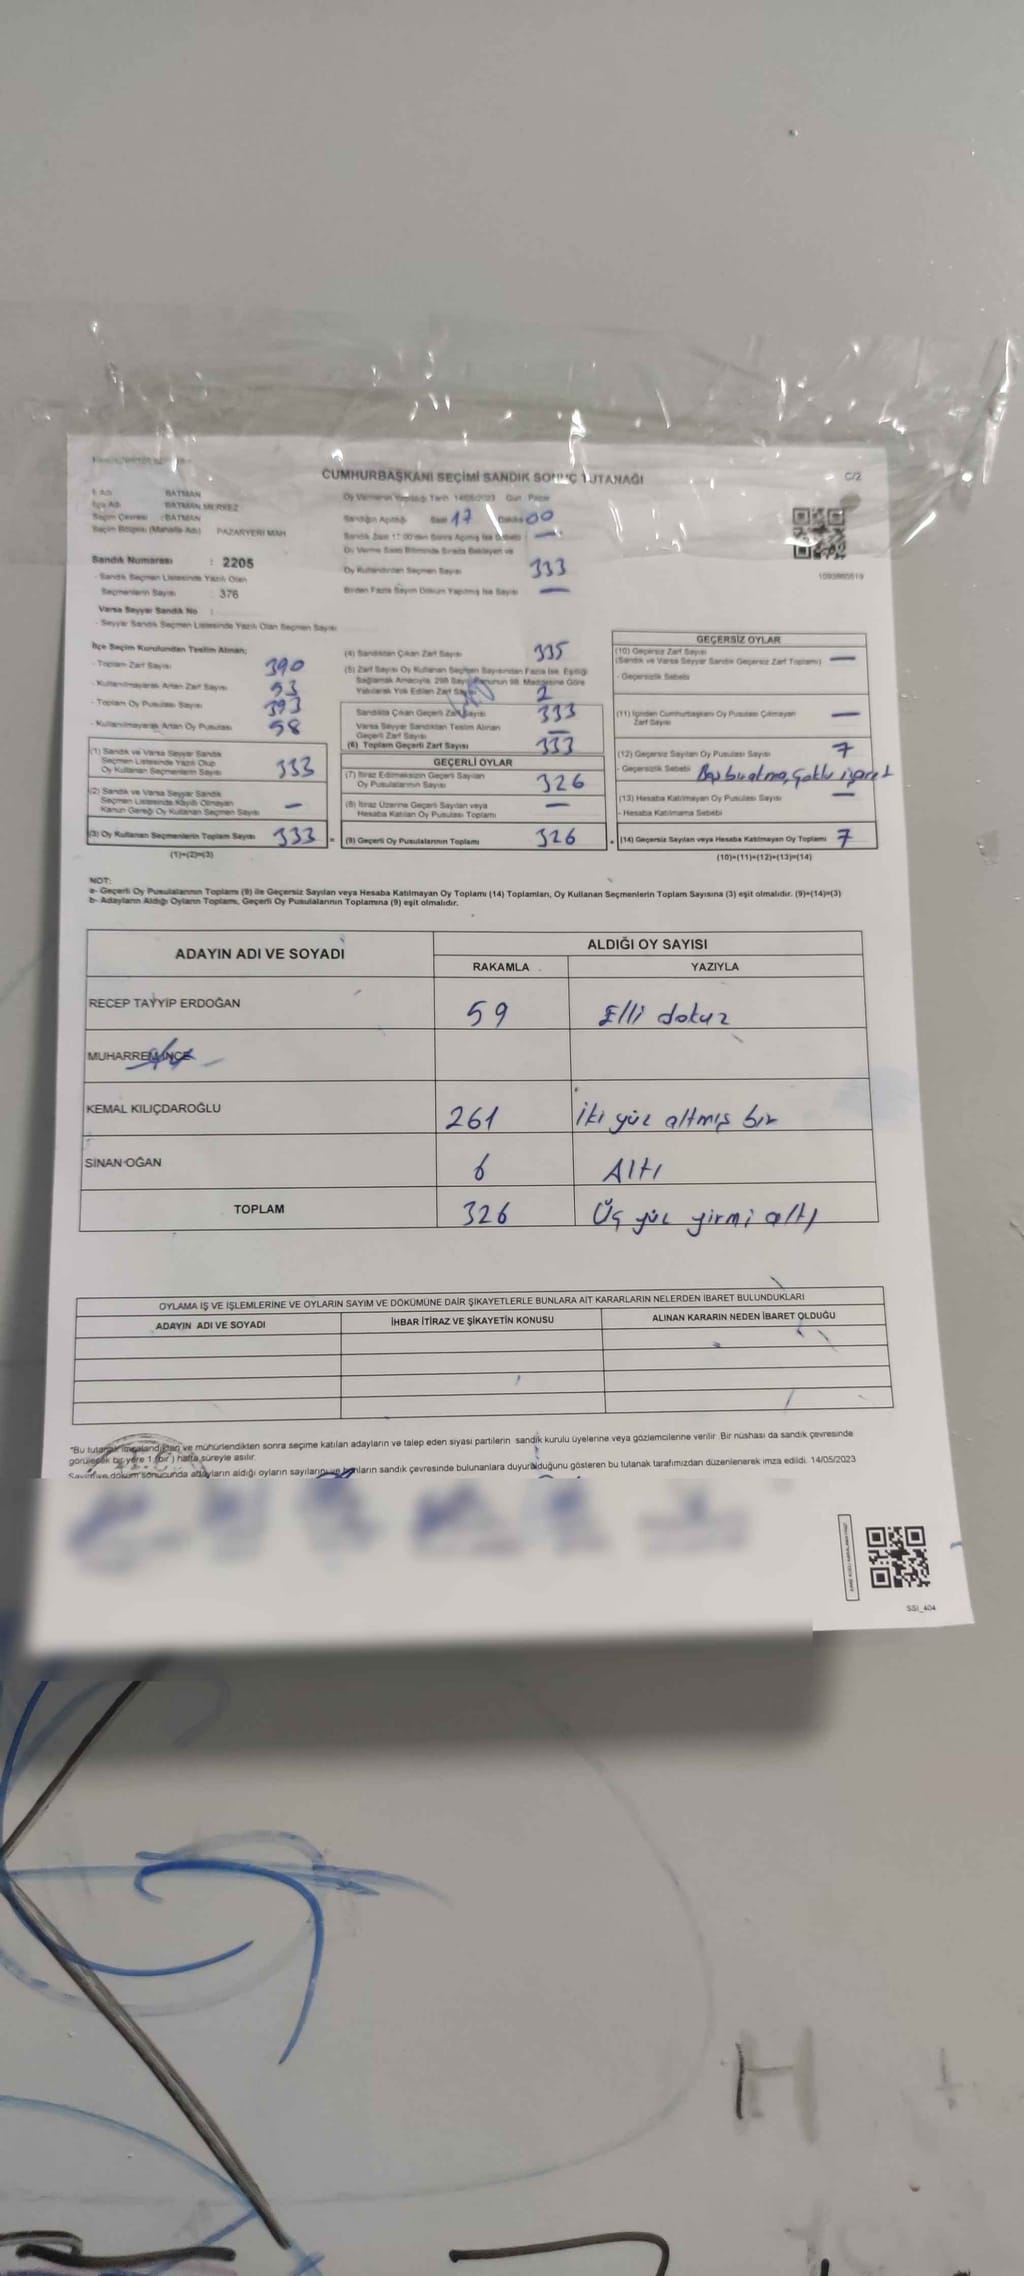 CUMHURBAŞKANI SEÇİMİ SANDIK SONUÇ TUTANAĞI
C/2
İl Adı : BATMAN
İlçe Adı : BATMAN MERKEZ
Seçim Çevresi : BATMAN
Seçim Bölgesi (Mahalle Adı) PAZARYERİ MAH
Sandık Numarası : 2205
- Sandık Seçmen Listesinde Yazılı Olan
Seçmenlerin Sayısı : 376
Varsa Seyyar Sandık No :
- Seyyar Sandık Seçmen Listesinde Yazılı Olan Seçmen Sayısı
Oy Vermenin Yapıldığı Tarih 14/05/2023 Gün Pazar
Sandığın Açıldığı Saat 17 Dakika 00
Oy Kullandırılan Seçmen Sayısı 333
Birden Fazla Sayım Döküm Yapılmış İse Sayısı —
İlçe Seçim Kurulundan Teslim Alınan;
- Toplam Zarf Sayısı 390
- Kullanılmayarak Artan Zarf Sayısı 53
- Toplam Oy Pusulası Sayısı 393
- Kullanılmayarak Artan Oy Pusulası 58
(1) Sandık ve Varsa Seyyar Sandık
Seçmen Listesinde Yazılı Olup
Oy Kullanan Seçmenlerin Sayısı 333
(2) Sandık ve Varsa Seyyar Sandık
Seçmen Listesinde Kayıtlı Olmayan
Kanun Gereği Oy Kullanan Seçmen Sayısı —
(3) Oy Kullanan Seçmenlerin Toplam Sayısı 333
(1)+(2)=(3)
(4) Sandıktan Çıkan Zarf Sayısı 335
(5) Zarf Sayısı Oy Kullanan Seçmen Sayısından Fazla İse, Eşitliği
Sağlamak Amacıyla, 298 Sayılı Kanunun 98. Maddesine Göre
Yakılarak Yok Edilen Zarf Sayısı 2
Sandıkta Çıkan Geçerli Zarf Sayısı 333
Varsa Seyyar Sandıktan Teslim Alınan
Geçerli Zarf Sayısı —
(6) Toplam Geçerli Zarf Sayısı 333
GEÇERLİ OYLAR
(7) İtiraz Edilmeksizin Geçerli Sayılan
Oy Pusulalarının Sayısı 326
(8) İtiraz Üzerine Geçerli Sayılan veya
Hesaba Katılan Oy Pusulası Toplamı —
(9) Geçerli Oy Pusulalarının Toplamı 326
1093860519
GEÇERSİZ OYLAR
(10) Geçersiz Zarf Sayısı
(Sandık ve Varsa Seyyar Sandık Geçersiz Zarf Toplamı) —
- Geçersizlik Sebebi
(11) İçinden Cumhurbaşkanı Oy Pusulası Çıkmayan
Zarf Sayısı —
(12) Geçersiz Sayılan Oy Pusulası Sayısı 7
- Geçersizlik Sebebi
(13) Hesaba Katılmayan Oy Pusulası Sayısı —
- Hesaba Katılmama Sebebi
(14) Geçersiz Sayılan veya Hesaba Katılmayan Oy Toplamı 7
(10)+(11)+(12)+(13)=(14)
NOT:
a- Geçerli Oy Pusulalarının Toplamı (9) ile Geçersiz Sayılan veya Hesaba Katılmayan Oy Toplamı (14) Toplamları, Oy Kullanan Seçmenlerin Toplam Sayısına (3) eşit olmalıdır. (9)+(14)=(3)
b- Adayların Aldığı Oyların Toplamı, Geçerli Oy Pusulalarının Toplamına (9) eşit olmalıdır.
ADAYIN ADI VE SOYADI
ALDIĞI OY SAYISI
RAKAMLA YAZIYLA
RECEP TAYYİP ERDOĞAN 59 Elli dokuz
MUHARREM İNCE
KEMAL KILIÇDAROĞLU 261 İki yüz altmış bir
SİNAN OĞAN 6 Altı
TOPLAM 326 Üç yüz yirmi altı
OYLAMA İŞ VE İŞLEMLERİNE VE OYLARIN SAYIM VE DÖKÜMÜNE DAİR ŞİKAYETLERLE BUNLARA AİT KARARLARIN NELERDEN İBARET BULUNDUKLARI
ADAYIN ADI VE SOYADI İHBAR İTİRAZ VE ŞİKAYETİN KONUSU ALINAN KARARIN NEDEN İBARET OLDUĞU
"Bu tutanak imzalandıktan ve mühürlendikten sonra seçime katılan adayların ve talep eden siyasi partilerin sandık kurulu üyelerine veya gözlemcilerine verilir. Bir nüshası da sandık çevresinde
görülecek bir yere 1 (bir) hafta süreyle asılır.
Sayım ve döküm sonucunda adayların aldığı oyların sayılarını ve bunların sandık çevresinde bulunanlara duyurulduğunu gösteren bu tutanak tarafımızdan düzenlenerek imza edildi. 14/05/2023
SSI_404
H